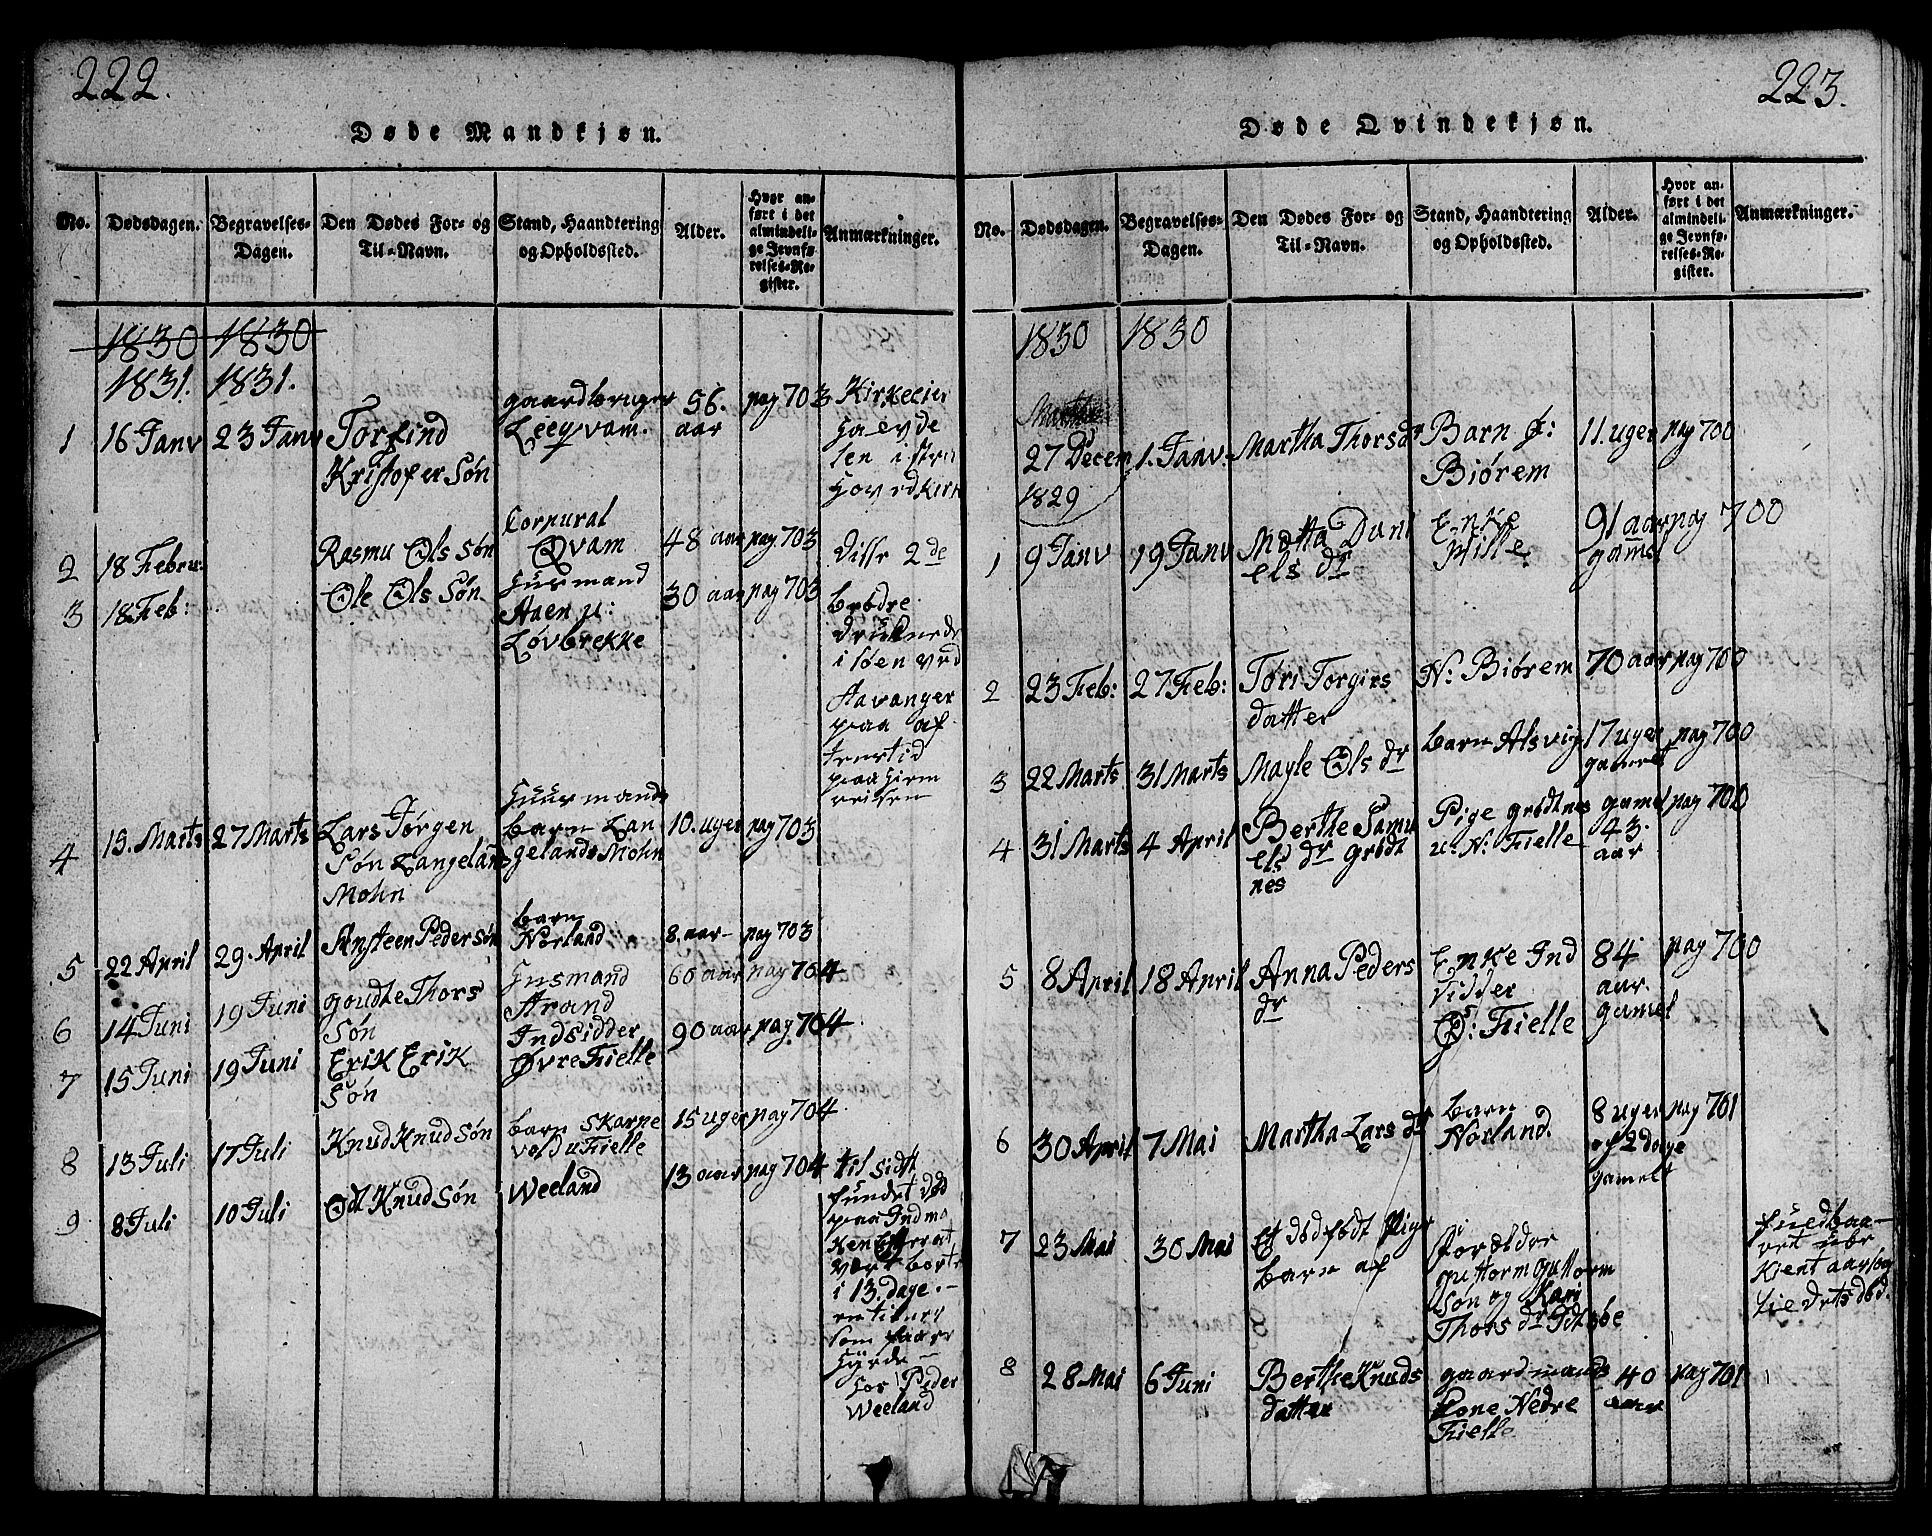 222.
Døde Mandkjøn.
No.
Dødsdagen.
Begravelses-
Dagen.
Den Dødes For- og
Til-Navn.
Stand, Haandtering
og Opholdssted.
Alder.
Hvor an-
ført i det
almindeli-
ge Jevnfø-
relses-Re-
gister.
Anmærkninger.
1830 1830
1831. 1831.
1 16 Janv 23 Janv Torfind
Kristofer Søn
gaardbruger
Leeqvam.
56.
aar
pag 703
Kirkeeier
2 18 Febru:
Rasmu Ols Søn
Corpural
Qvam
48 aar pag 703
Disse 2de
3 18 Feb:
Ole Ols Søn
Husmand
Aaen u:
Løvbrekke
30 aar pag 703
brødre
druknede
i Søen ved
paa af
paa hiem
reisen
4 19. Marts 27 Marts Lars Jørgen
Søn Langelands
Mohn
Huusmands
barn Lan
gelands Mohn
10. uger pag 703
5 22 April 29. April Ansteen Peder Søn
barn
Norland
8. aar- pag 703
6 14 Juni 19 Juni goudte Thors
Søn
Husmand
Arand
60 aar pag 704
7 15 Juni 19 Juni Erik Erik
Søn
Indsidder
Øvre Fielle
90 aar pag 704
8 13 Juli 17 Juli Knud Knud Søn
barn Skarpe
vold u Fielle
15 uger pag 704
9 8 Juli 10 Juli Odt Knud Søn
Weeland
13 aar pag 704
til sidst
fundet død
paa Indma
ken Efter at
vært borte
i 13. dage. -
som faare
Hyrde -
Hos Peder
Weeland
223.
Døde Qvindekjøn.
No.
Dødsdagen.
Begravelses-
Dagen.
Den Dødes For- og
Til-Navn.
Stand, Haandtering
og Opholdssted.
Alder.
Hvor an-
ført i det
almindeli-
ge Jevnfø-
relses-Re-
gister.
Anmærkninger.
1830 1830
27 Decem
1829
1. Janv: Martha Thorsdr
Barn Ø:
Biørem
11. uger pag 700
1 9 Janv 19 Janv Matta Dani
els dr
Enke
Mille
91 aar
gamel
pag 700
2 23 Feb: 27 Feb: Tøri Torgirs
datter
N: Biørem 70 aar pag 700
3 22 Marts 31 Marts Mayle Ols dr
barn Alsvig 17 uger
gamel
pag 700
4 31 Marts 4 April Berthe Samu
els dr grødt
nes
Pige grødtnes
u: N: Fielle
gamel
43.
aar
pag 700
5 8 April 18 April Anna Peders
dr
Enke Ind
Sidder
Ø: Fielle
84
aar.
gamel
pag 700
6 30 April 7 Mai Martha Lars dr
barn
Norland.
8 uger
og 2 dage
gamel
pag 701
7 23 Mai 30 Mai Et død født Pige
Barn af
Forældre
guttorm guttorm
Søn og Kari
Thors dr
8 28 Mai 6 Juni Berthe Knuds
datter
gaardmands
kone Nedre
Fielle
40
aar
pag 701